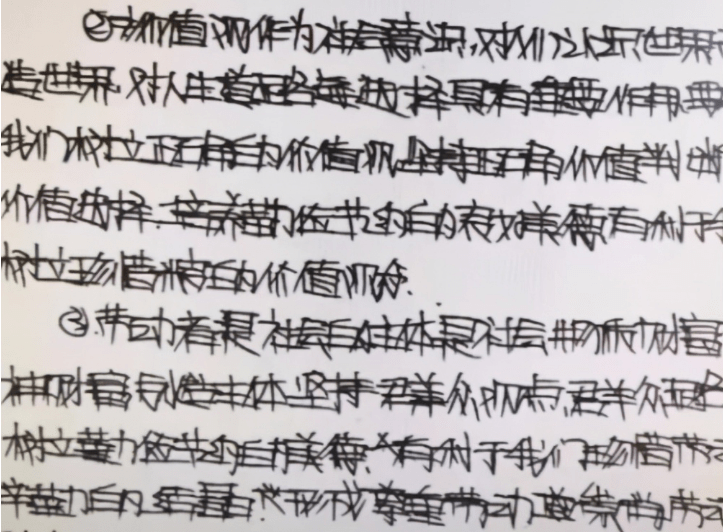 ②价值观作为社会意识,对人们认识世界
造世界,对人生道路的选择具有重要作用,要
我们树立正确的价值观,坚持正确价值判断
价值选择.培养勤俭节约的良好美德,有利于
树立珍惜粮食的价值观念.
③.劳动者是社会的主体是社会物质财富
神财富创造主体.坚持群众观点,群众路
树立勤俭节约的美德,有利于我们珍惜劳动
辛勤的结晶,形成尊重劳动